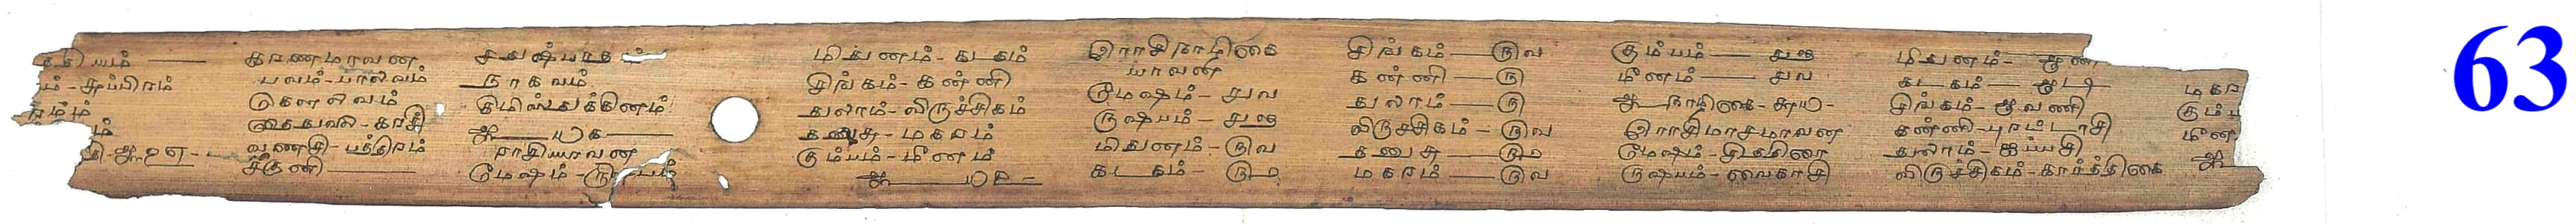 கரணமாவன
பவம்-பாலவம்
கௌலவம்
தைதுலை-கரசி
வணசி-பத்திரம்
சகுனி
சதுஷ்பாத
நாகவம்
கிமிஸ்துக்கினம்
ஆ — ௰௧ —
ராசியாவன
மேஷம்-
மிதுனம்-கடகம்
சிங்கம்-கன்னி
துலாம்-விருச்சிகம்
தனுசு-மகரம்
கும்பம்-மீனம்
ஆ — ௰௨ —
இராசிநாழிகை
யாவன
மேஷம்-
ருஷபம்-
மிதுனம்-
கடகம்-
சிங்கம் — ௫வ
கன்னி — ௫
துலாம் — ௫
விருச்சிகம் — ௫வ
தனுசு —
மகரம் — ௫வ
கும்பம் —
மீனம் — ௪வ
ஆ நாழிகை-௬௰-
இராசிமாசமாவன
மேஷம்-சித்திரை
ருஷபம்-வைகாசி
மிதுனம்-ஆனி
கடகம் — ஆடி
சிங்கம்-ஆவணி
கன்னி-புரட்டாசி
துலாம்-ஐப்பசி
விருச்சிகம்-கார்த்திகை
மகர
கும்ப
மீன
ஆ
63